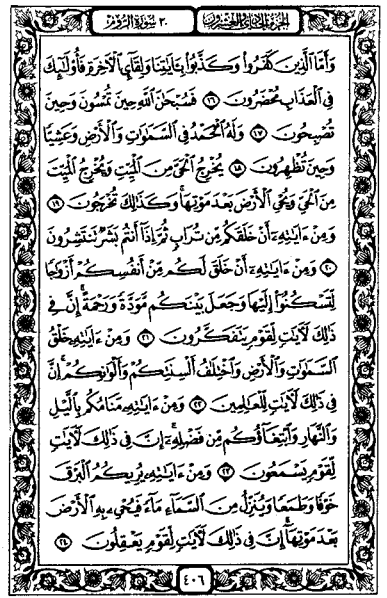 الجزء الحادي والعشرون ٣٠ سورة الروم
وَأَمَّا ٱلَّذِينَ كَفَرُوا۟ وَكَذَّبُوا۟ بِـَٔايَـٰتِنَا وَلِقَآئِ ٱلْـَٔاخِرَةِ فَأُو۟لَـٰٓئِكَ
فِى ٱلْعَذَابِ مُحْضَرُونَ ١٦ فَسُبْحَـٰنَ ٱللَّهِ حِينَ تُمْسُونَ وَحِينَ
تُصْبِحُونَ ١٧ وَلَهُ ٱلْحَمْدُ فِى ٱلسَّمَـٰوَٰتِ وَٱلْأَرْضِ وَعَشِيًّا
وَحِينَ تُظْهِرُونَ ١٨ يُخْرِجُ ٱلْحَىَّ مِنَ ٱلْمَيِّتِ وَيُخْرِجُ ٱلْمَيِّتَ
مِنَ ٱلْحَىِّ وَيُحْىِ ٱلْأَرْضَ بَعْدَ مَوْتِهَا ۚ وَكَذَٰلِكَ تُخْرَجُونَ ١٩
وَمِنْ ءَايَـٰتِهِۦٓ أَنْ خَلَقَكُم مِّن تُرَابٍ ثُمَّ إِذَآ أَنتُم بَشَرٌ تَنتَشِرُونَ
٢٠ وَمِنْ ءَايَـٰتِهِۦٓ أَنْ خَلَقَ لَكُم مِّنْ أَنفُسِكُمْ أَزْوَٰجًا
لِّتَسْكُنُوٓا۟ إِلَيْهَا وَجَعَلَ بَيْنَكُم مَّوَدَّةً وَرَحْمَةً ۚ إِنَّ فِى
ذَٰلِكَ لَـَٔايَـٰتٍ لِّقَوْمٍ يَتَفَكَّرُونَ ٢١ وَمِنْ ءَايَـٰتِهِۦ خَلْقُ
ٱلسَّمَـٰوَٰتِ وَٱلْأَرْضِ وَٱخْتِلَـٰفُ أَلْسِنَتِكُمْ وَأَلْوَٰنِكُمْ ۚ إِنَّ
فِى ذَٰلِكَ لَـَٔايَـٰتٍ لِّلْعَـٰلِمِينَ ٢٢ وَمِنْ ءَايَـٰتِهِۦ مَنَامُكُم بِٱلَّيْلِ
وَٱلنَّهَارِ وَٱبْتِغَآؤُكُم مِّن فَضْلِهِۦٓ ۚ إِنَّ فِى ذَٰلِكَ لَـَٔايَـٰتٍ
لِّقَوْمٍ يَسْمَعُونَ ٢٣ وَمِنْ ءَايَـٰتِهِۦ يُرِيكُمُ ٱلْبَرْقَ
خَوْفًا وَطَمَعًا وَيُنَزِّلُ مِنَ ٱلسَّمَآءِ مَآءً فَيُحْىِۦ بِهِ ٱلْأَرْضَ
بَعْدَ مَوْتِهَآ ۚ إِنَّ فِى ذَٰلِكَ لَـَٔايَـٰتٍ لِّقَوْمٍ يَعْقِلُونَ ٢٤
٤٠٦